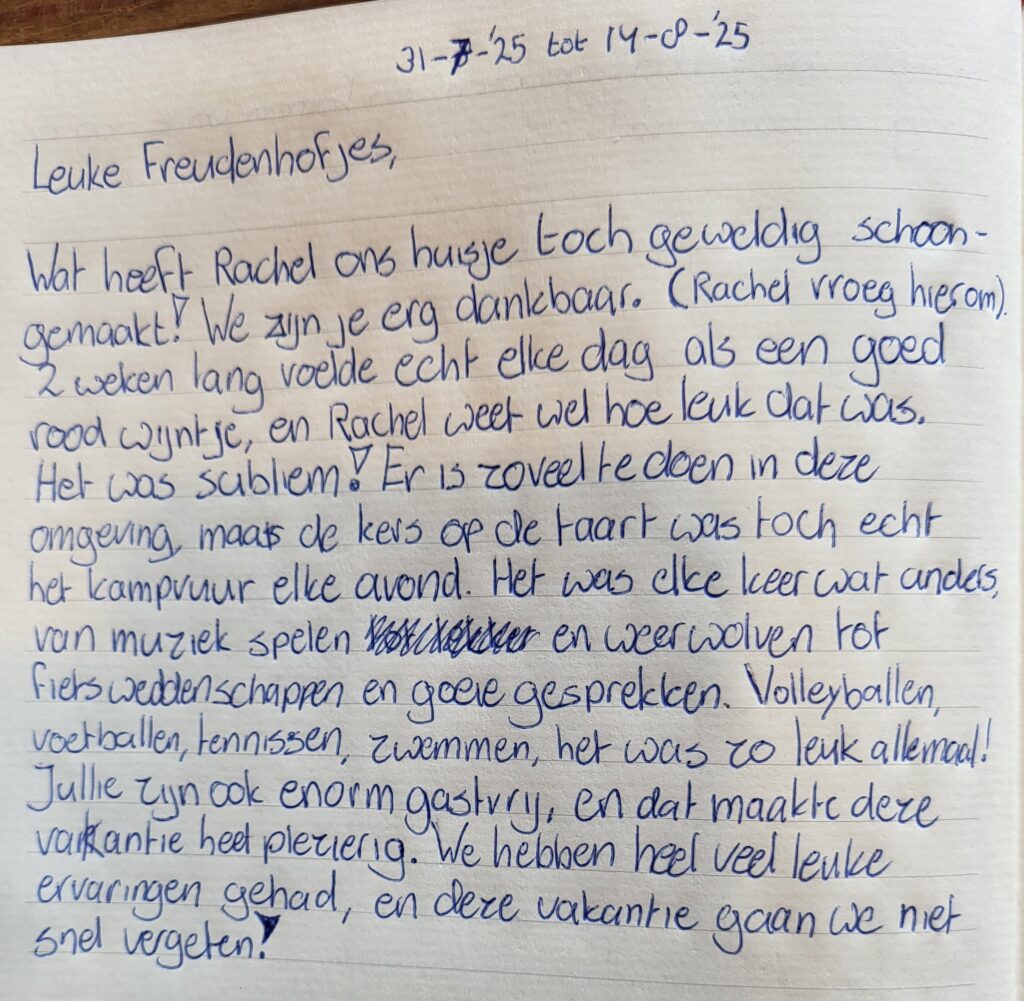 31-7-'25 tot 14-8-'25
Leuke Freudenhofjes,
Wat heeft Rachel ons huisje toch geweldig schoon-
gemaakt! We zijn je erg dankbaar. (Rachel vroeg hierom).
2 weken lang voelde echt elke dag als een goed
rood wijntje, en Rachel weet wel hoe leuk dat was.
Het was subliem! Er is zoveel te doen in deze
omgeving, maar de kers op de taart was toch echt
het kampvuur elke avond. Het was elke keer wat anders,
van muziek spelen en weerwolven tot
fietsweddenschappen en goeie gesprekken. Volleyballen,
voetballen, tennissen, zwemmen, het was zo leuk allemaal!
Jullie zijn ook enorm gastvrij, en dat maakte deze
vakantie heel plezierig. We hebben heel veel leuke
ervaringen gehad, en deze vakantie gaan we niet
snel vergeten!